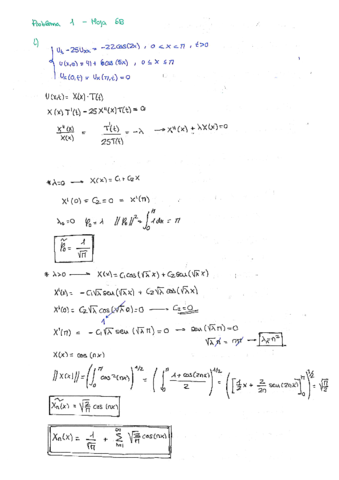 Problema 1 - Hoja 6B
i)
Ut - 25Uxx = -22cos(2x), 0<x<π, t>0
U(x,0) = 41 + 6cos(8x), 0≤x≤π
Ux(0,t) = Ux(π,t) = 0
U(x,t) = X(x)·T(t)
X(x)T'(t) - 25X''(x)T(t) = 0
X''(x)/X(x) = T'(t)/25T(t) = -λ → X''(x) + λX(x) = 0
* λ=0 → X(x) = C1 + C2X
X'(0) = C2 = 0 = X'(π)
λ0=0 ‖ ‖² = ∫0^π 1dx = π
= 1/√π
* λ>0 → X(x) = C1cos(√λ x) + C2sen(√λ x)
X'(x) = -C1√λ sen(√λ x) + C2√λ cos(√λ x)
X'(0) = C2√λ cos(√λ 0) = 0 → C2=0
1
X'(π) = -C1√λ sen(√λ π) = 0 → sen(√λ π) = 0
√λ π = nπ → λ=n²
X(x) = cos(nx)
‖X(x)‖ = (∫0^π cos²(nx))^1/2 = (∫0^π 1+cos(2nx)/2)^1/2 = ([1/2 x + 2/2n sen(2nx)]0^π)^1/2 = √π/2
Xn(x) = √2/π cos(nx)
Xn(x) = 1/√π + Σ n=1 ∞ √2/π cos(nx)